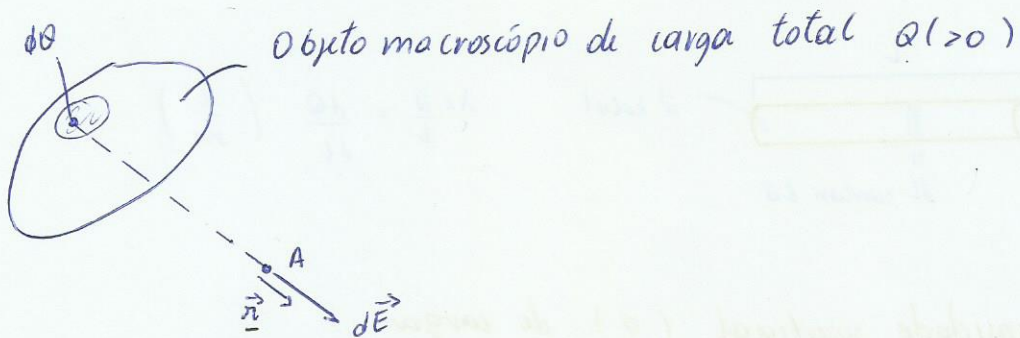 Objeto macroscópio de carga total Q(>0)
dQ
A
r⃗
dE⃗